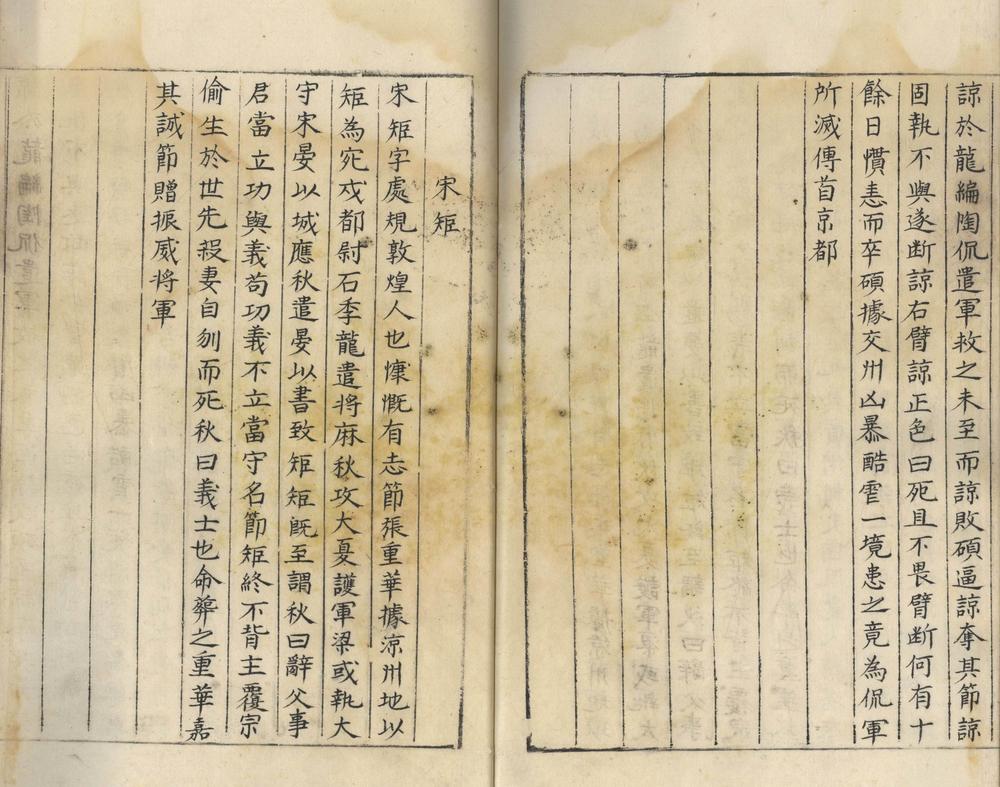 諒於龍編陶侃遣軍救之未至而諒敗碩逼諒奪其節諒
固執不與遂断諒右臂諒正色曰死且不畏臂断何有十
餘日憤恚而卒碩據交州凶暴酷虐一境患之竟為侃軍
所滅傳首京都
宋矩
宋矩字處規敦煌人也慷慨有志節張重華據涼州地以
矩為宛戍都尉石季龍遣将麻秋攻大夏護軍梁或執大
守宋晏以城應秋遣晏以書致矩矩旣至謂秋曰辭父事
君當立功與義苟功義不立當守名節矩終不背主覆宗
偷生於世先殺妻自刎而死秋曰義士也命葬之重華嘉
其誠節贈振威将軍